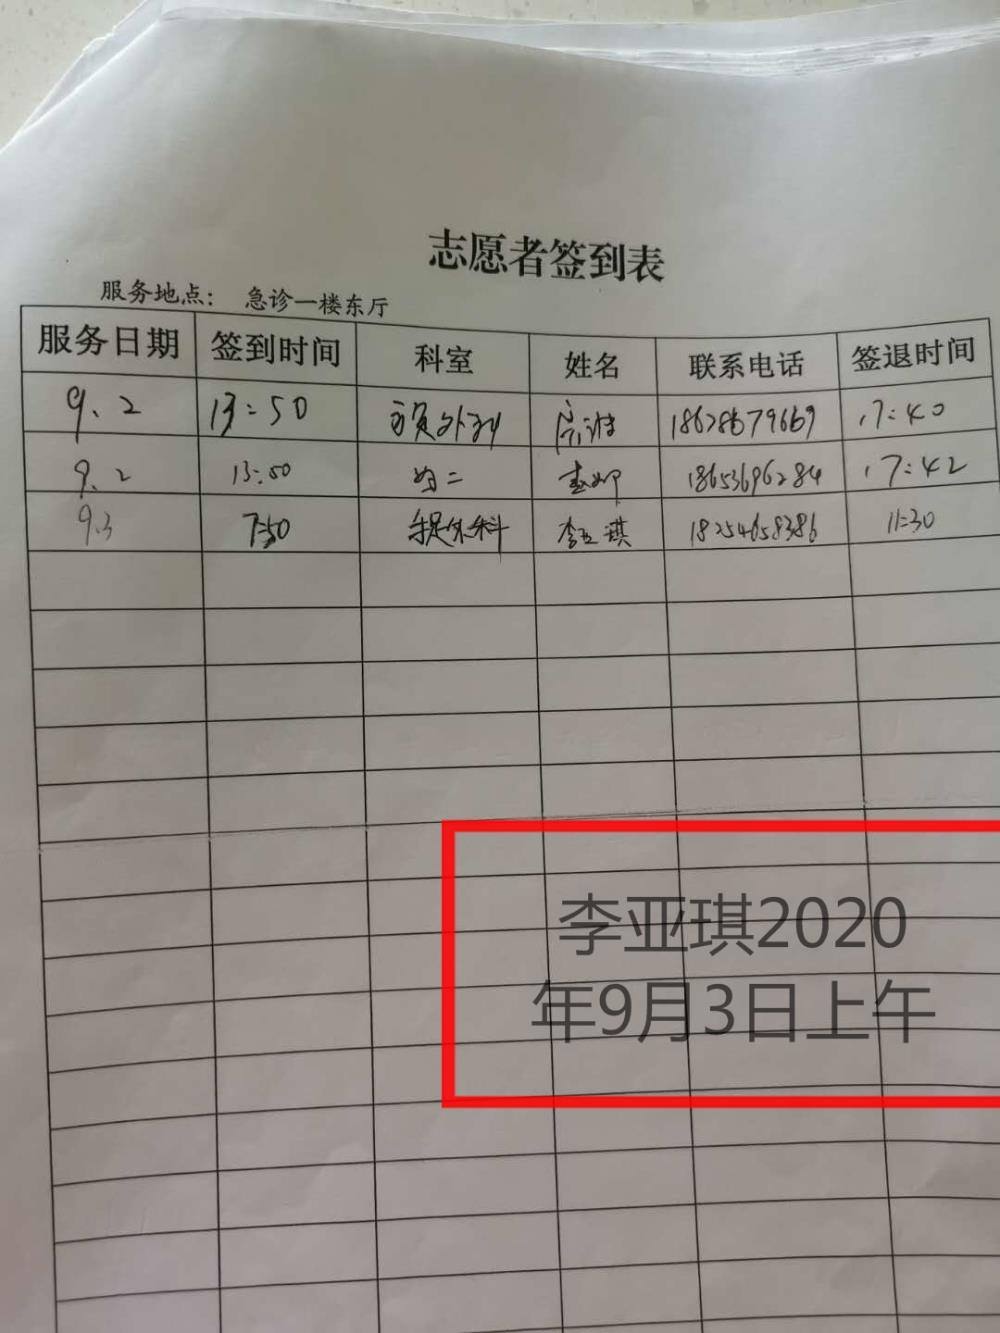 志愿者签到表
服务地点： 急诊一楼东厅
服务日期 签到时间 科室 姓名 联系电话 签退时间
9.2 13:50 17:40
9.2 13:50 18653696284 17:42
9.3 7:50 李亚琪 18254658386 11:30
李亚琪2020
年9月3日上午